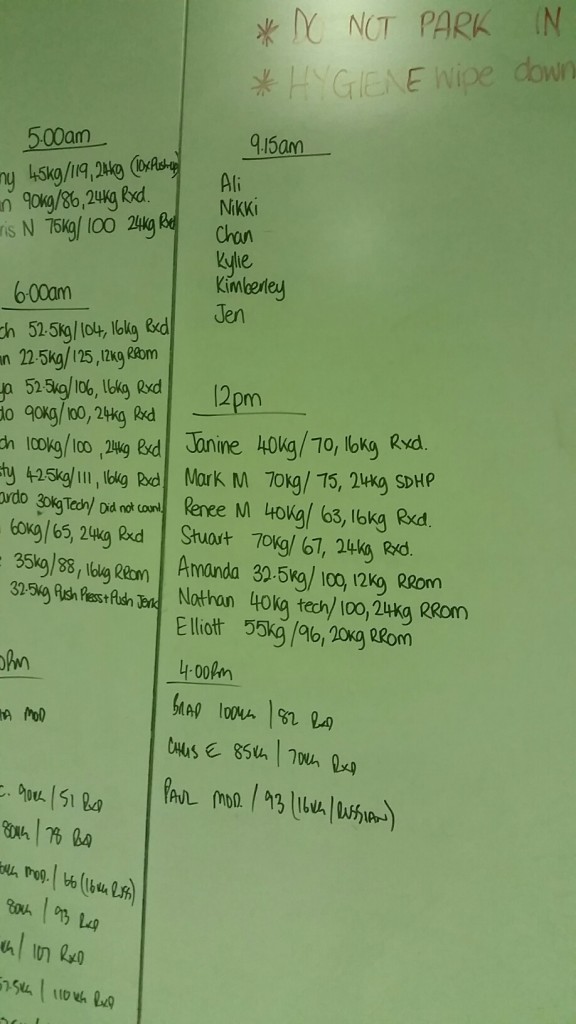 * DO NOT PARK IN
* HYGIENE wipe down
5:00am
ny 45kg/119, 24kg (10xPushup)
n 90kg/86, 24kg Rxd.
ris N 75kg/100 24kg Rxd
6:00am
ch 52.5kg/104, 16kg Rxd
n 22.5kg/125, 12kg RRom
ya 52.5kg/106, 16kg Rxd
do 90kg/100, 24kg Rxd
ch 100kg/100, 24kg Rxd
ty 42.5kg/111, 16kg Rxd
ardo 30kg Tech/ Did not count
60kg/65, 24kg Rxd
35kg/88, 16kg RRom
32.5kg Push Press + Push Jerk
0pm
MOD
C. 90kg/51 RxD
80kg/78 RxD
MOD./66 (16kg RUSS)
80kg/93 RxD
kg/107 RxD
57.5kg/110kg RxD
9.15am
Ali
Nikki
Chan
Kylie
Kimberley
Jen
12pm
Janine 40kg/70, 16kg Rxd.
Mark M 70kg/75, 24kg SDHP
Renee M 40kg/63, 16kg Rxd.
Stuart 70kg/67, 24kg Rxd.
Amanda 32.5kg/100, 12kg RRom
Nathan 40kg tech/100, 24kg RRom
Elliott 55kg/96, 20kg RRom
4:00pm
BRAD 100kg/82 RxD
CHRIS E 85kg/70kg RxD
PAUL MOD./93 (16kg/RUSSIAN)